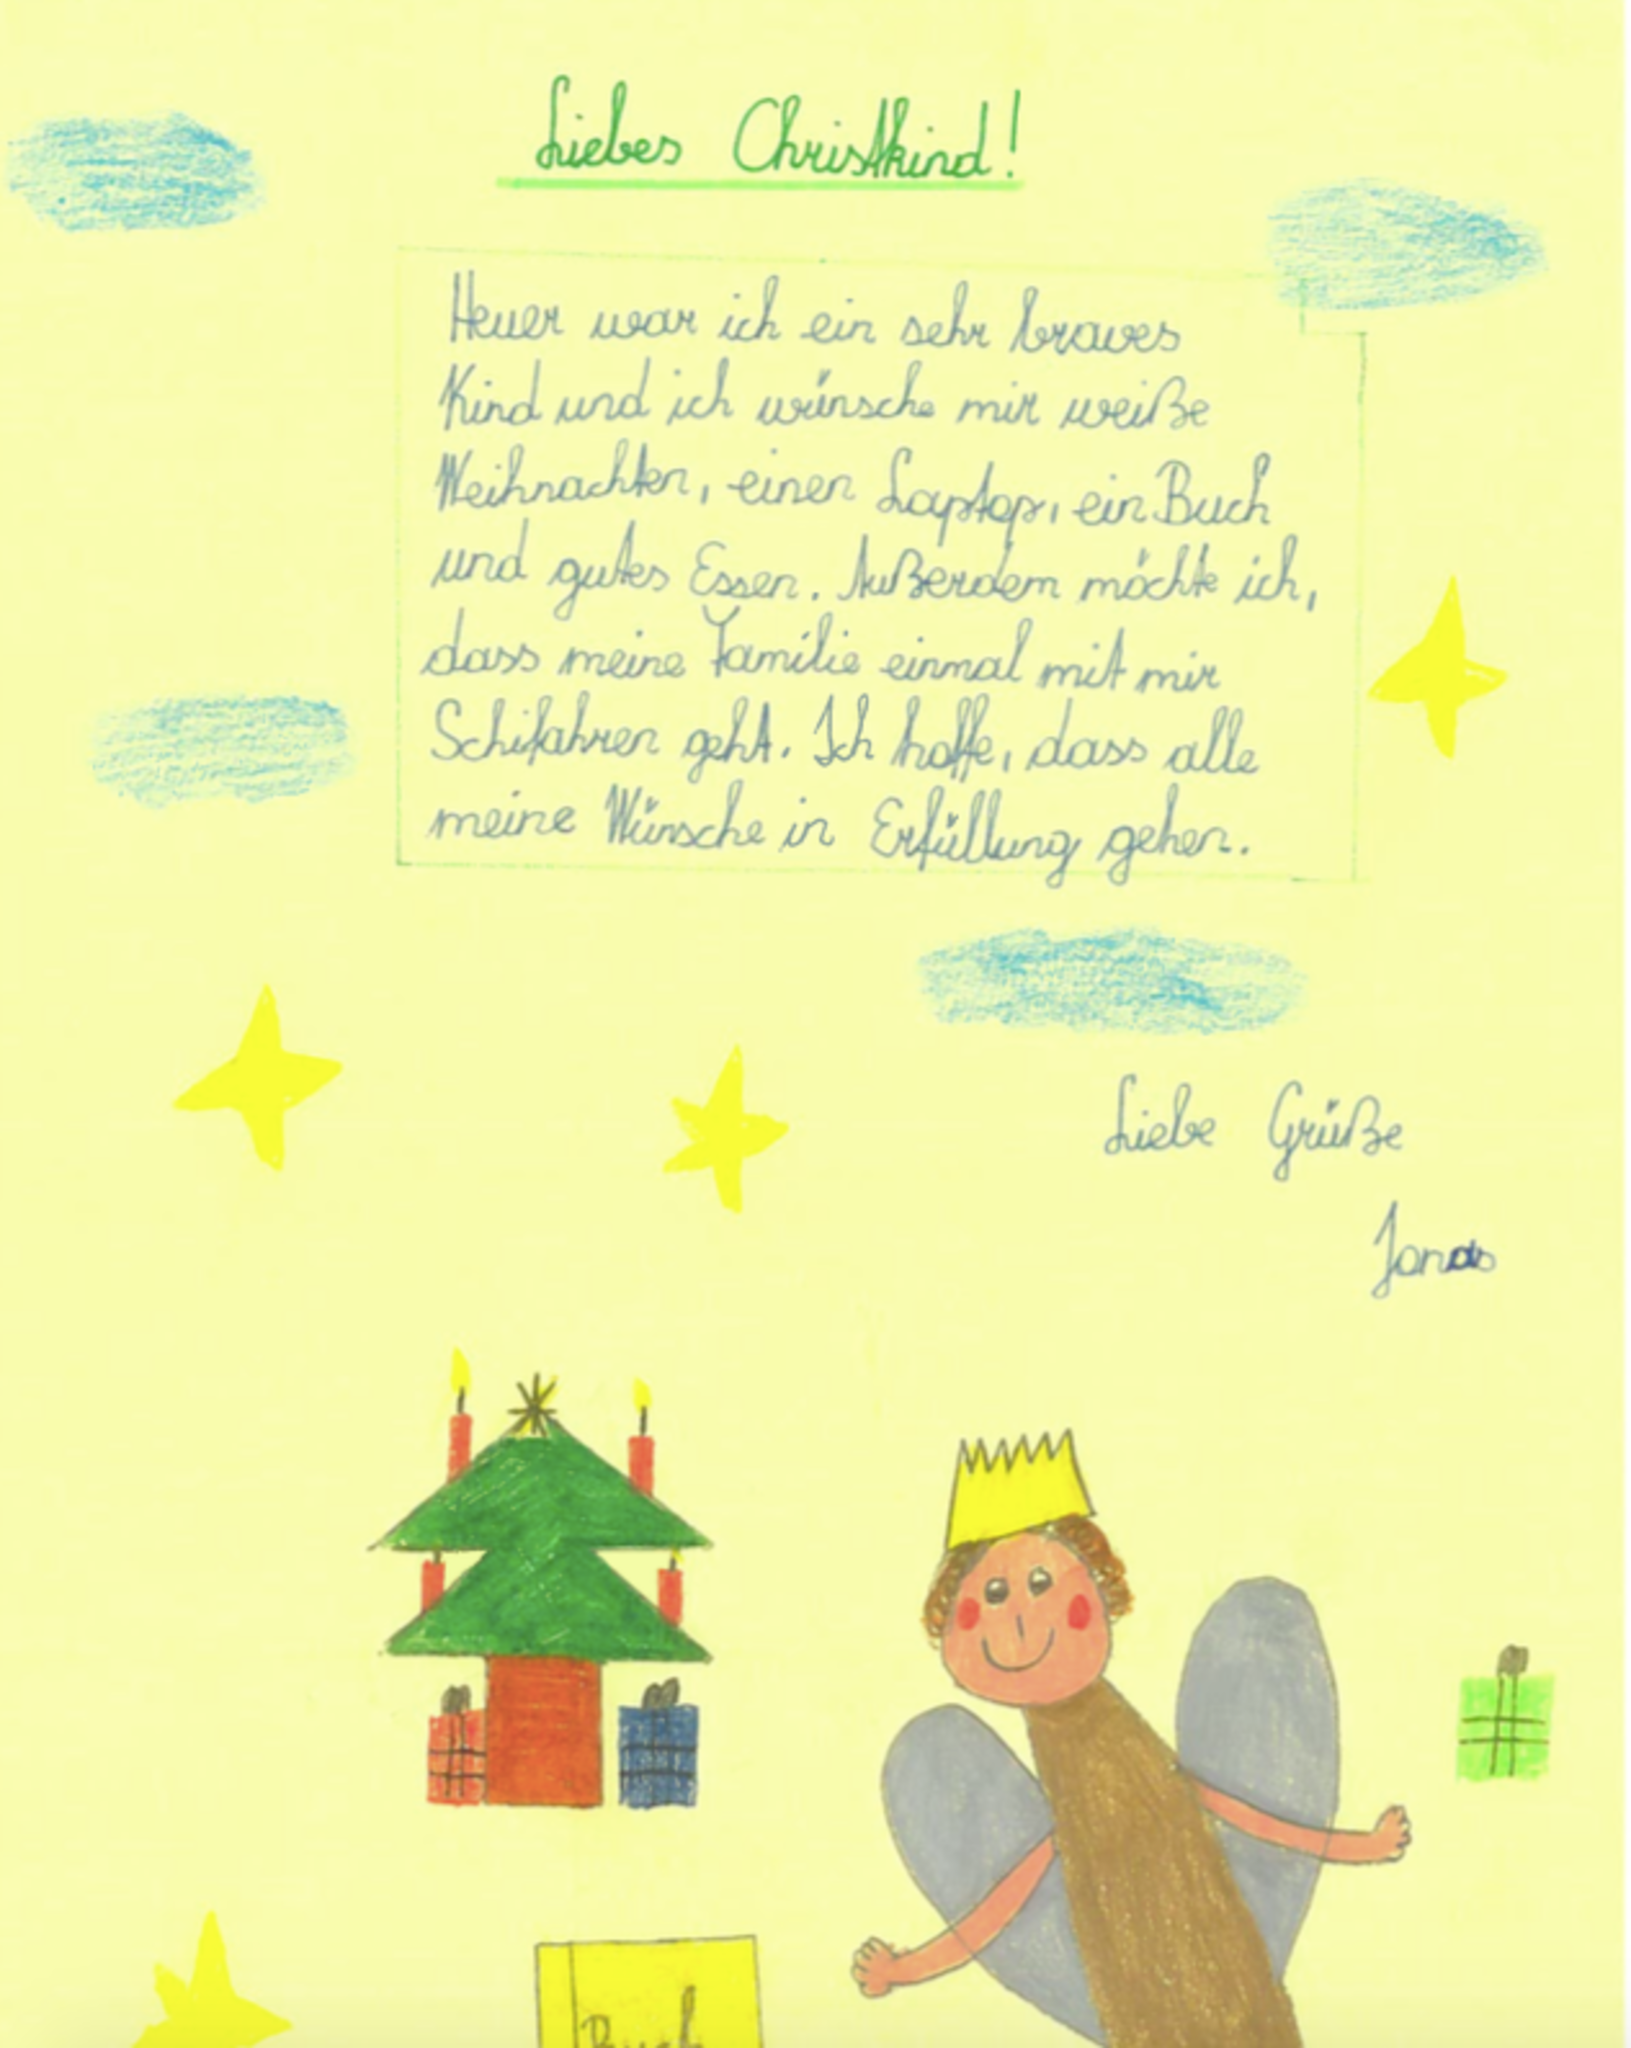 Liebes Christkind!
Heuer war ich ein sehr braves
Kind und ich wünsche mir weiße
Weihnachten, einen Laptop, ein Buch
und gutes Essen. Außerdem möchte ich,
dass meine Familie einmal mit mir
Schifahren geht. Ich hoffe, dass alle
meine Wünsche in Erfüllung gehen.
Liebe Grüße
Jonas
Buch